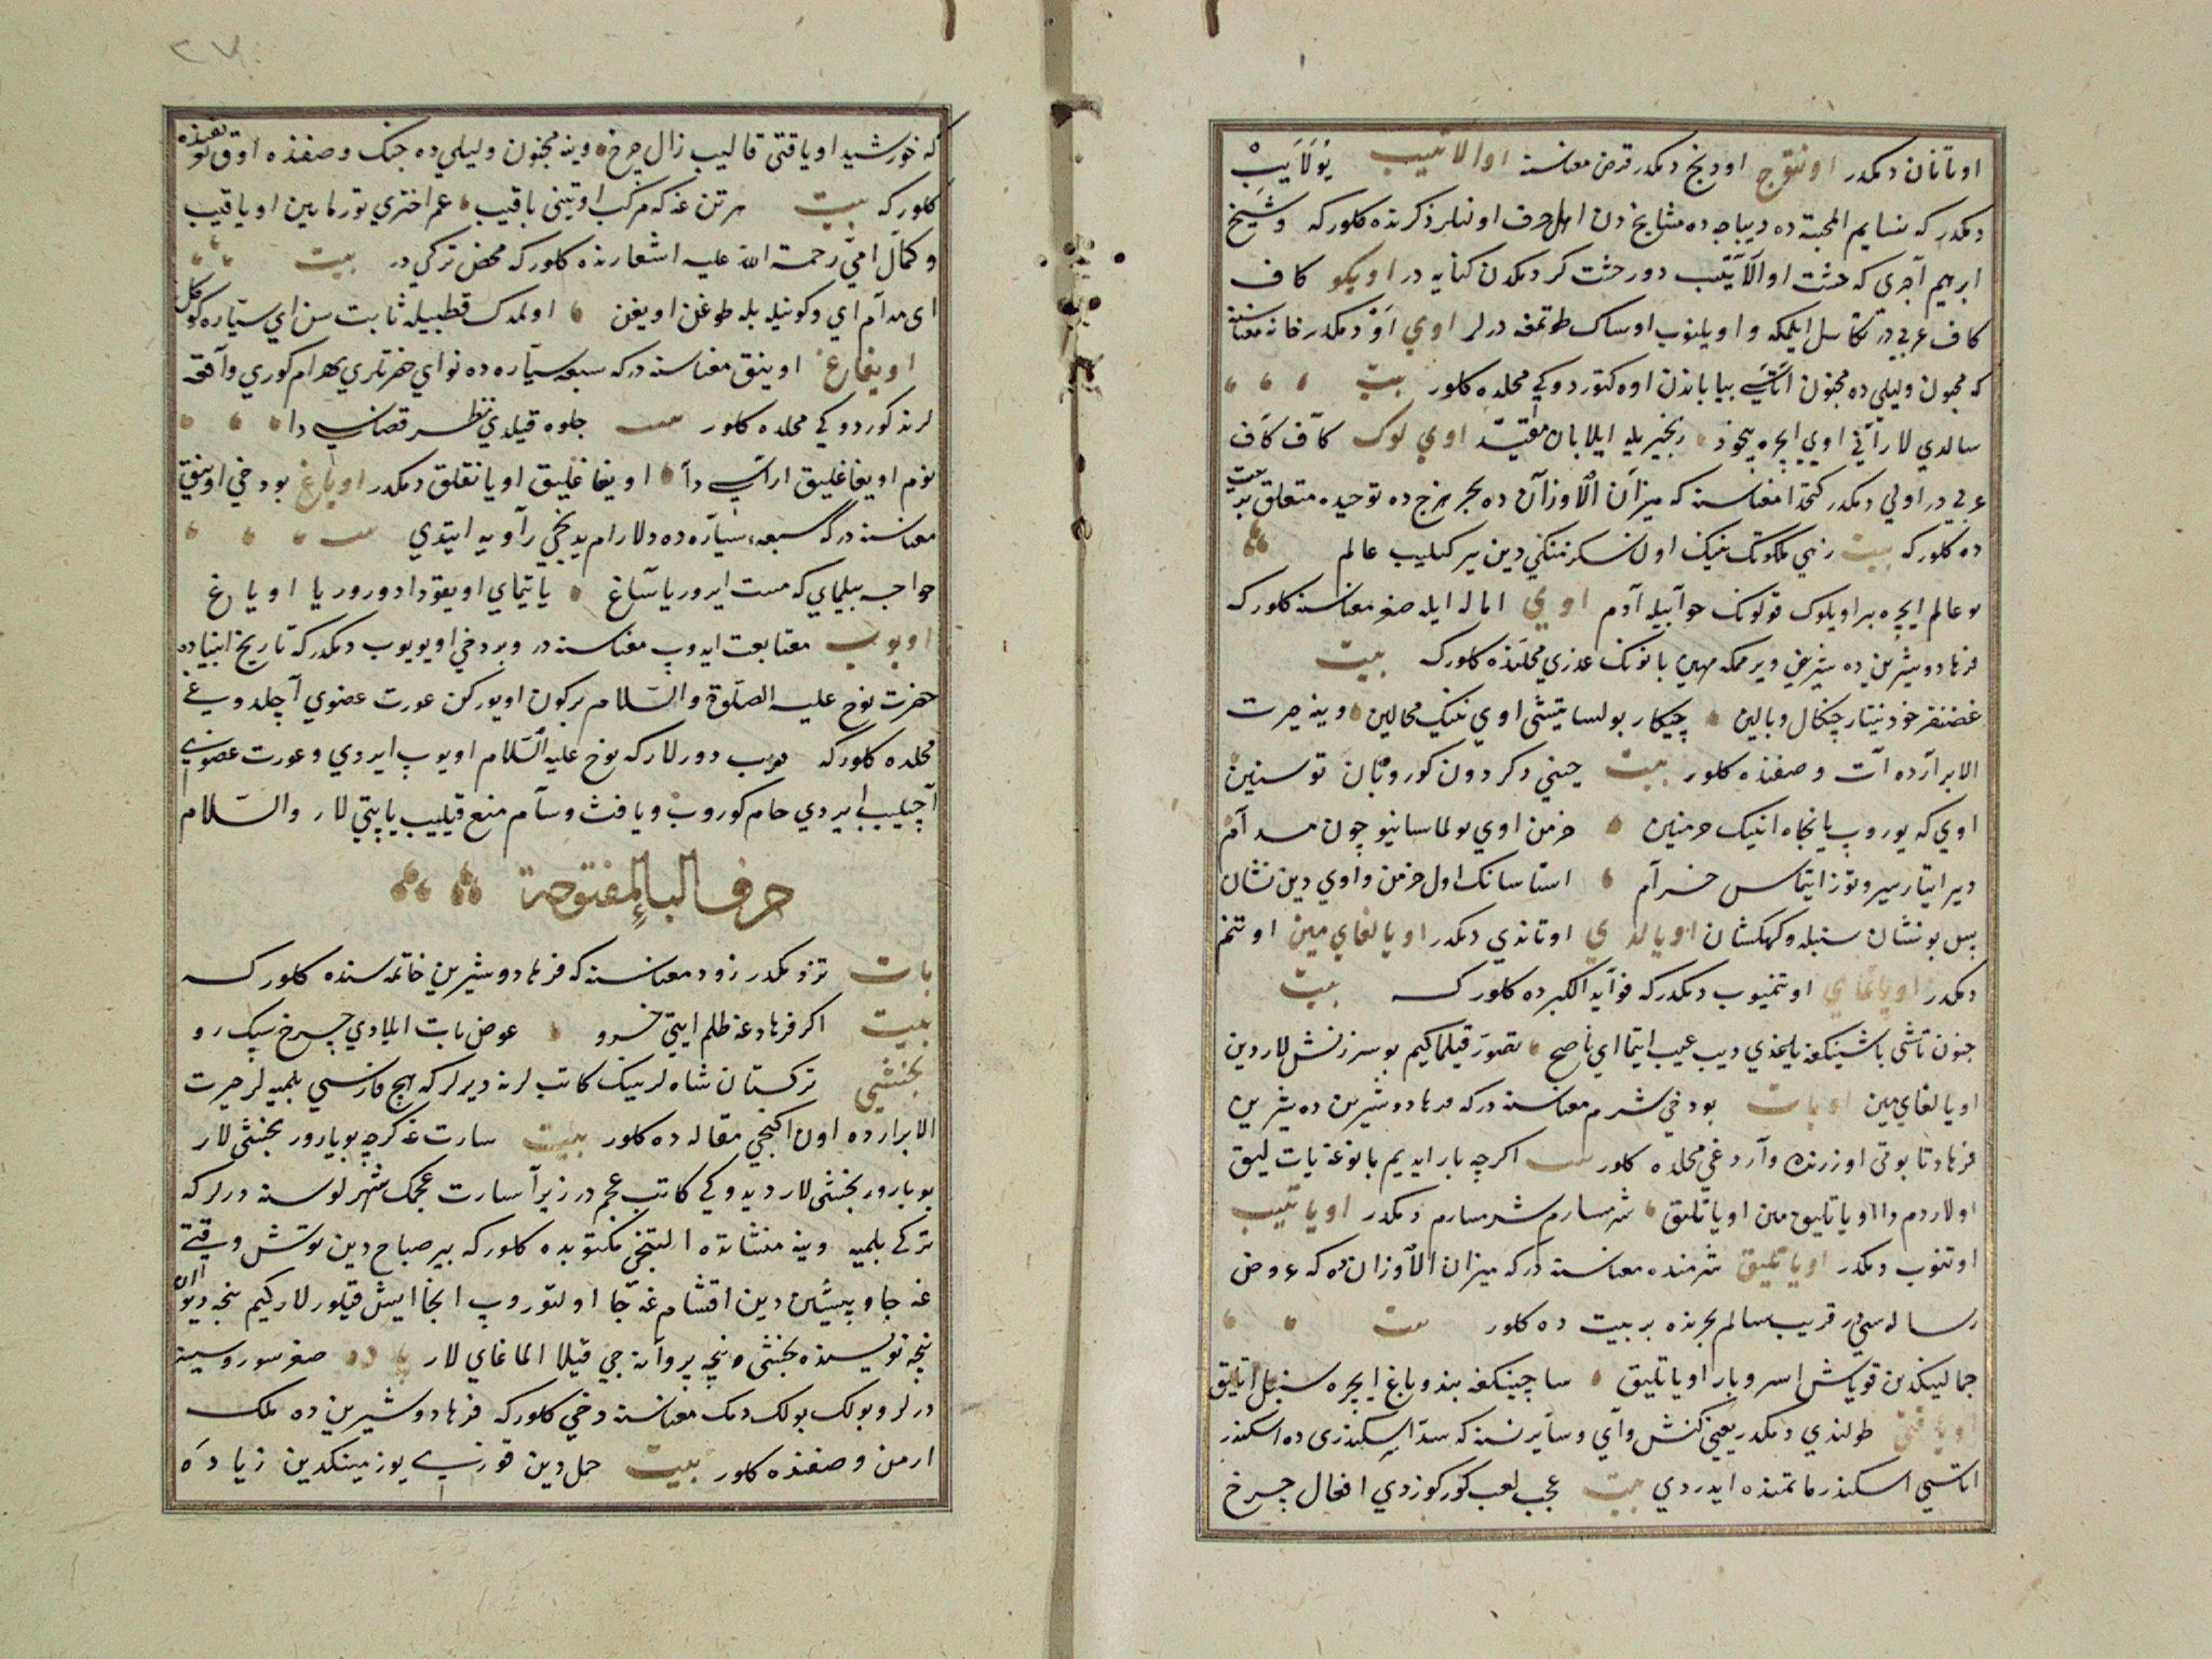 اوتانان دیمكدر اونتوج اودنج دیمكدر قرض معناسنه اوالاتیب یُولَایِبْ
دیمكدر كه نسایم المحبة ده دیباجه ده مشایخ دن اهل حرف اونلر ذكرنده كلور كه وشیخ
ابرهیم آجری كه خشت اوالاییب دور خشت كر دیمكدن كنایه در اویكو كاف
كاف عربی در تكاسل ایلمكه واویلنوب اوساك طوتمغه درلر اوی اَوْ دیمكدر خانه معناسنه
كه مجنون ولیلی ده مجنون اتاسی بیاباندن اوه كتوردوكی محلده كلور بیت
سالدی لار آنی اوی ایچره بیخود زنجیر یله ایلابان مقید اوی لوك كاف كاف
عربی در اولی دیمكدر كتخدا معناسنه كه میزان الاوزان ده بحر هزج ده توحیده متعلق بر بیت
ده كلور كه بیت زهی ملكوتك نینك اول نسكرننكی دین بیر كیلیب عالم
بو عالم ایچره بر اویلوك قولونك حوا بیله آدم اوی اماله ایله صغر معناسنه كلور كه
فرهاد وشیرین ده شیرین ویرمكه مهین بانونك عذری محلنده كلور كه بیت
غضنفر خود نیتار چنكال وبالین چیكار بولسا یتشی اوی نینك محالین وینه حیرت
الابرارده آت وصفنده كلور بیت جینی دكردون كوروبان توسنین
اوی كه یوروب یانجاه انینك خرمنین خرمن اوی بولماسا نیوچون مدام
دیر ایتار سیر وتوز ایتماس خرام استاسانك اول خرمن واوی دین نشان
بیل بو نشان سنبله وكهكشان اویالدی اوتاندی دیمكدر اویالغای مین اوتنم
دیمكدر اویالمای اوتنمیوب دیمكدر كه فواید الكبرده كلور كه بیت
جنون تاشی باشینكغه یاغدی دیب عیب ایتما ای ناصح تصور قیلماكیم بو سرزنش لاردین
اویالغای مین اویات بو دخی شرم معناسنه در كه فرهاد وشیرین ده شیرین
فرهاد تابوتی اوزرنده وآردغی محلده كلور بیت اكرچه بار ایدیم بانوغه یات لیق
اولاردم دا اویاتلیق مین اویاتلیق شرمسارم شرمسارم دیمكدر اویاتیب
اوتنوب دیمكدر اویاتلیق شرمنده معناسنه در كه میزان الاوزان ده كه عروض
رساله سی در قریب سالم بحرنده بر بیت ده كلور بیت
جمالینكدن قویاش اسرو بار اویاتلیق ساچینكغه بند وباغ ایچره سنبل اتلیق
اویاقتی طولندی دیمكدر یعنی كنش وآی وسایرنسنه كه سد اسكندری ده اسكندر
اتاسی اسكندر ماتمنده ایدردی بیت عجب لعب كور كوزدی افعال چرخ
كه خورشید اویاقتی قالیب زال چرخ وینه مجنون ولیلی ده جنك وصفنده اوق تعریفنده
كلور كه بیت هر تن غه كه مركب اوتینی باقیب عمر اختری تورمایین اویاقیب
وكمال امی رحمة الله علیه اشعارنده كلور كه محض تركی در بیت
ای مدام ای وكونیله بله طوغن اویغن اولمدك قطبیله ثابت سن ای سیاره كوكل
اویغاغ اوینق معناسنه در كه سبعه سیاره ده نوای حضرتلری بهرام كوری وآقچه
لرنه كوردوكی محلده كلور بیت جلوه قیلدی نظر قضاسی دا
نوم اویغاغلیق اراسی دا اویغاغلیق اویانقلق دیمكدر اویاغ بو دخی اوینق
معناسنه در كه سبعه سیاره ده دلارام یدنجی راویه ایتدی بیت
خواجه بیلمای كه مست ایرور یا ساغ یاتیمای اویقودا دورور یا اویاغ
اویوب متابعت ایدوب معناسنه در وبر دخی اویویوب دیمكدر كه تاریخ انبیاده
حضرت نوح علیه الصلوة والسلام بر كون اویوركن عورت عضوی آچلدوغی
محلده كلور كه دیب دورلار كه نوح علیه السلام اویوب ایردی وعورت عضوی
آچیلیب ایردی حام كوروب ویافث وسام منع قیلیب یاپتی لار والسلام
حرف الباء المفتوحة
بات تز دیمكدر زود معناسنه كه فرهاد وشیرین خاتمه سنده كلور كه
بیت اكر فرهادغه ظلم ایتی خسرو عوض بات ایلادی چرخ سبك رو
بخشی تركستان شاه لرینك كاتب لرنه دیرلر كه هیچ فارسی بلمیه لر حیرت
الابرارده اون اكنجی مقاله ده كلور بیت سارت غه كرچه بویارور بخشی لار
بویارور بخشی لار دیدوكی كاتب عجم در زیرا سارت عجمك شهرلوسنه درلر كه
تركی بلمیه وینه منشاتده التنجی مكتوبده كلور كه بیر صباح دین توش وقتی
غه جا وپیشین دین اقشام غه جا اولتوروب انجا ایش قیلورلار كیم نیچه دیوان
نیچه نویسنده بخشی ونیچه پروانه جی قیلا الماغای لار باده صغر سوروسینه
درلر وبولك بولك دیمك معناسنه دخی كلور كه فرهاد وشیرین ده ملك
ارمن وصفنده كلور بیت حمل دین قوزیسی یوز مینكدین زیاده